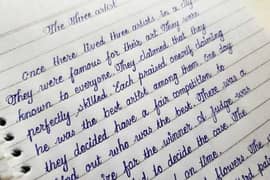 The three artist
Once there lived three artists in a city
They were famous for their art. They were
known to everyone. They claimed that they
perfectly skilled. Each praised
he was the best artist among them. One day
they decided have a fair competition to
out who was the best. There was a
for the winner. A judge was
to decide the case. The
on time.
flowers. The